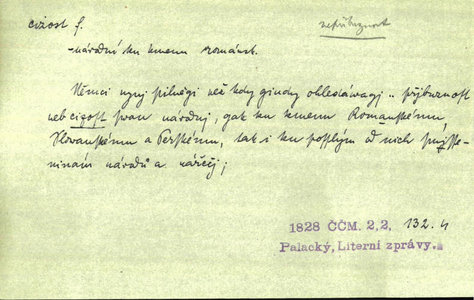 cizost f. nepříbuznost
-národní ku kmenu románst.
Němci nyní pilněgi než kdy gindy ohledáwagj .. přjbuznost
neb cizost swau národnj, gak ku kmenu Romanskému,
Slowanskému a Perskému, tak i ku possлým od nich
národů a nářečj;
1828 ČČM. 2,2, 132. h
Palacký, Literní zprávy.